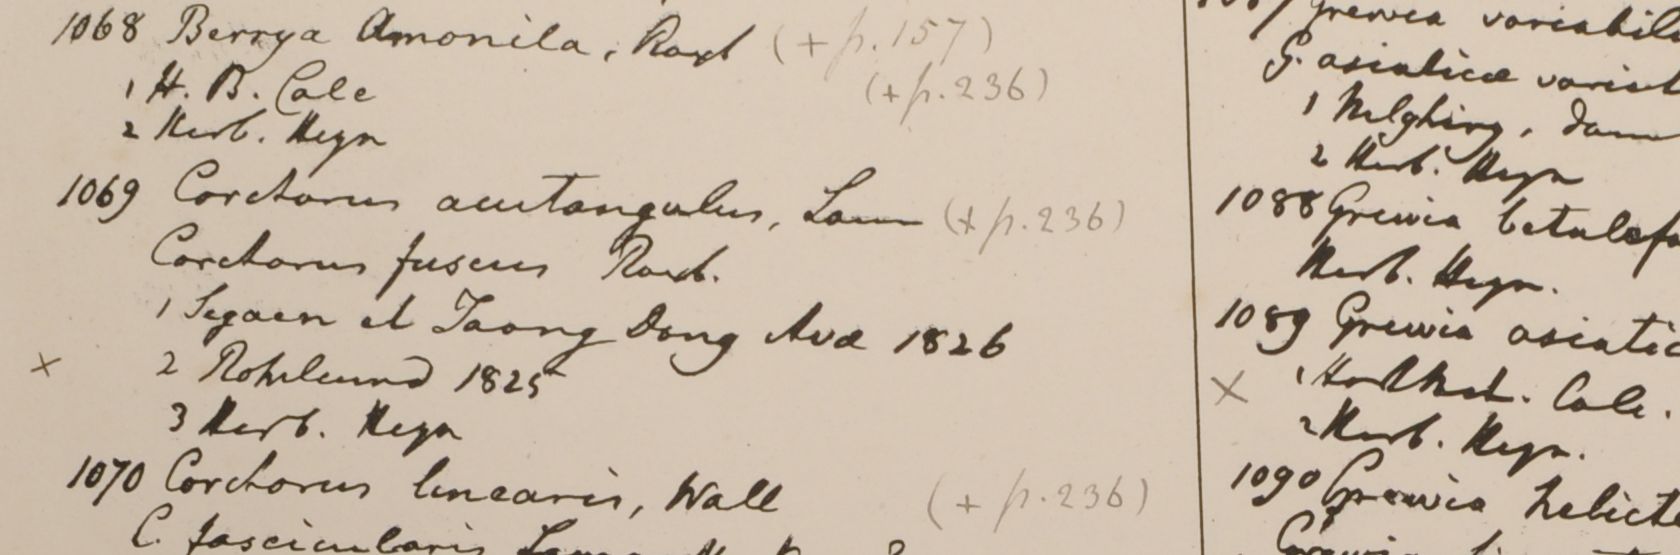 1068 Berrya Amonila, Roxb (+ p. 157)
(+ p. 236)
1 H. B. Calc
2 Herb. Heyn
1069 Corchorus acutangulus, Lam (+ p. 236)
Corchorus fuscus Roxb.
1 Segaen et Taong Dong Ava 1826
× 2 Rohilcund 1825
3 Herb. Heyn
1070 Corchorus linearis, Wall (+ p. 236)
C. fascicularis
Grewia variabil
G. asiatica variet
1 Nilghiry,
2 Herb. Heyn
1088 Grewia betulefo
Herb. Heyn.
1089 Grewia asiatic
× 1 Calc.
2 Herb. Heyn.
1090 Grewia helict
Grewia